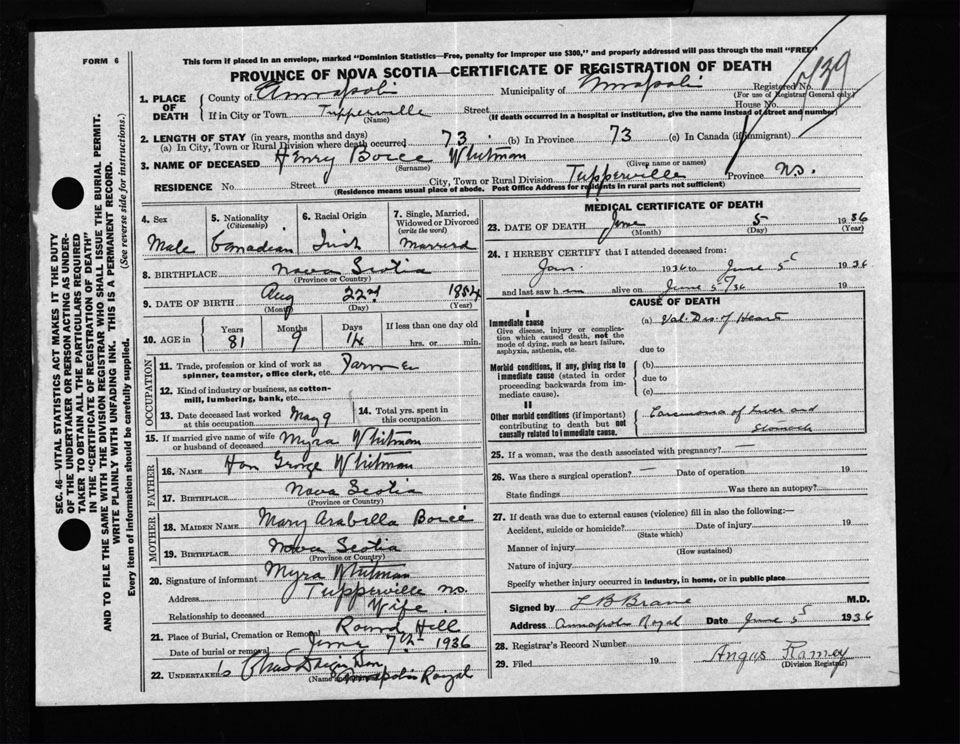 FORM 6
This form if placed in an envelope, marked "Dominion Statistics—Free, penalty for improper use $300," and properly addressed will pass through the mail "FREE"
PROVINCE OF NOVA SCOTIA—CERTIFICATE OF REGISTRATION OF DEATH
739
1. PLACE OF DEATH
County of Annapolis
Municipality of Annapolis
Registered No.
(For use of Registrar General only)
If in City or Town Tupperville Street House No.
(Name) (If death occurred in a hospital or institution, give the name instead of street and number)
2. LENGTH OF STAY (in years, months and days)
(a) In City, Town or Rural Division where death occurred 73 (b) In Province 73 (c) In Canada (if immigrant)
3. NAME OF DECEASED Henry Boice Whitman
(Surname) (Given name or names)
RESIDENCE No. Street City, Town or Rural Division Tupperville Province N.S.
(Residence means usual place of abode. Post Office Address for residents in rural parts not sufficient)
4. Sex
Male
5. Nationality
(Citizenship)
Canadian
6. Racial Origin
Irish
7. Single, Married, Widowed or Divorced
(write the word)
Married
8. BIRTHPLACE Nova Scotia
(Province or Country)
9. DATE OF BIRTH Aug 22nd 1854
(Month) (Day) (Year)
10. AGE in
Years Months Days If less than one day old
81 9 14 hrs. or min.
OCCUPATION
11. Trade, profession or kind of work as spinner, teamster, office clerk, etc. Farmer
12. Kind of industry or business, as cotton-mill, lumbering, bank, etc.
13. Date deceased last worked at this occupation May 9
14. Total yrs. spent in this occupation
15. If married give name of wife or husband of deceased Myra Whitman
FATHER
16. NAME Hon George Whitman
17. BIRTHPLACE Nova Scotia
(Province or Country)
MOTHER
18. MAIDEN NAME Mary Arabella Boice
19. BIRTHPLACE Nova Scotia
(Province or Country)
20. Signature of informant Myra Whitman
Address Tupperville N.S.
Relationship to deceased Wife
21. Place of Burial, Cremation or Removal Round Hill
Date of burial or removal June 7th 1936
22. UNDERTAKER
(Name
Annapolis Royal
MEDICAL CERTIFICATE OF DEATH
23. DATE OF DEATH June 5 1936
(Month) (Day) (Year)
24. I HEREBY CERTIFY that I attended deceased from:
Jan. 1936 to June 5 1936
and last saw h im alive on June 5/36 19
CAUSE OF DEATH
I
Immediate cause
Give disease, injury or complication which caused death, not the mode of dying, such as heart failure, asphyxia, asthenia, etc.
(a) Val. Dis. of Heart
due to
Morbid conditions, if any, giving rise to immediate cause (stated in order proceeding backwards from immediate cause).
(b)
due to
(c)
II
Other morbid conditions (if important) contributing to death but not causally related to immediate cause.
Carcinoma of Liver and
Stomach
25. If a woman, was the death associated with pregnancy?
26. Was there a surgical operation? — Date of operation 19
State findings Was there an autopsy?
27. If death was due to external causes (violence) fill in also the following:—
Accident, suicide or homicide? Date of injury 19
(State which)
Manner of injury
(How sustained)
Nature of injury
Specify whether injury occurred in industry, in home, or in public place
Signed by L B Brane M.D.
Address Annapolis Royal Date June 5 1936
28. Registrar's Record Number
29. Filed 19 Angus Ramey
(Division Registrar)
SEC. 46—VITAL STATISTICS ACT MAKES IT THE DUTY
OF THE UNDERTAKER OR PERSON ACTING AS UNDER-
TAKER TO OBTAIN ALL THE PARTICULARS REQUIRED
IN THE "CERTIFICATE OF REGISTRATION OF DEATH"
AND TO FILE THE SAME WITH THE DIVISION REGISTRAR WHO SHALL ISSUE THE BURIAL PERMIT.
WRITE PLAINLY WITH UNFADING INK. THIS IS A PERMANENT RECORD.
Every item of information should be carefully supplied. (See reverse side for instructions.)